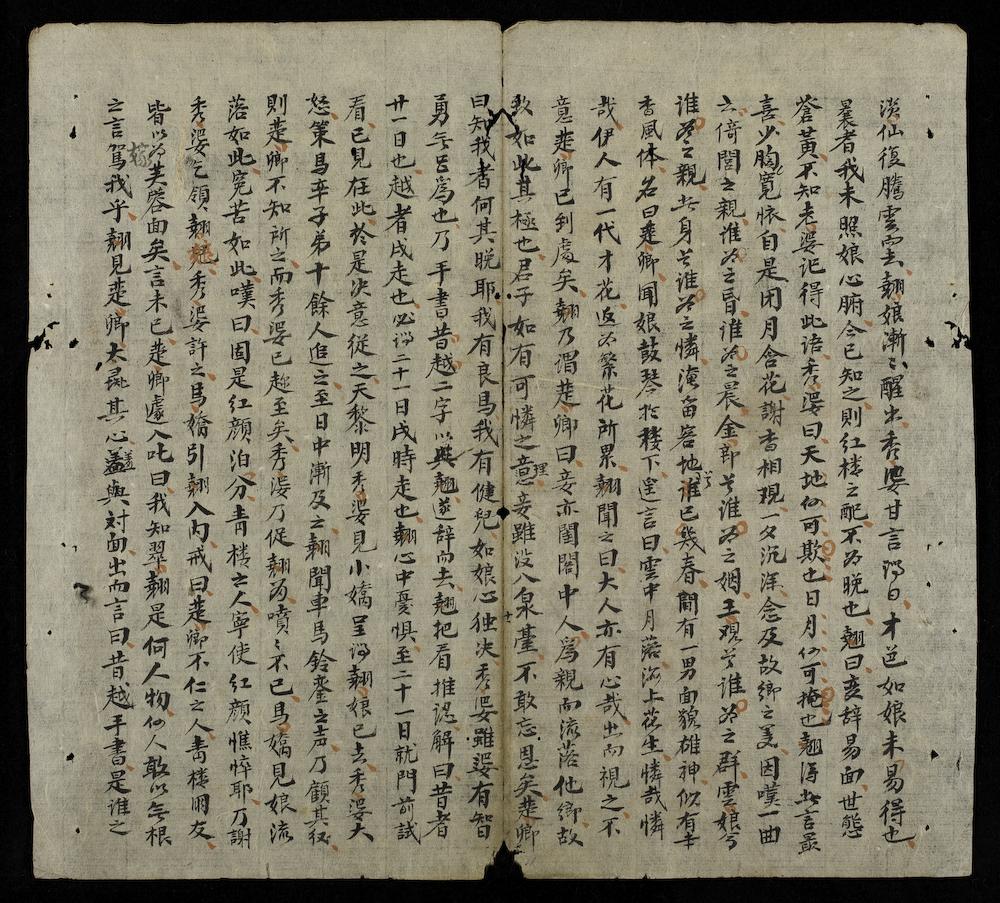 淡仙復騰雲空翹娘漸〻醒出秀婆甘言謂曰才色如娘未易得也
曩者我未照娘心腑今已知之則紅樓之配不為晚也翹曰变辞易面世態
蒼黃不知老婆記得此語秀婆曰天地何可欺也日月何可掩也翹得此言最
喜少胸寬懐自是閉月含花謝香相覌一夕沉洋念及故鄉之美因嘆一曲
云倚閭之親誰為之昏誰為之晨金郎兮誰為之姻王覌兮誰為之群雲娘兮
誰為之親此身兮誰為之憐淹畄客地誰已幾春間有一男面貌雄神似有丰
香風体名曰楚卿聞娘鼓琴於楼下逞言曰雲中月落海上花生憐哉憐
哉伊人有一代才花返為繁花所累翹聞之曰大人亦有心哉出而視之不
意楚卿已到處矣翹乃謂楚卿曰妾亦閨閣中人爲親而流落他鄉故
致如此其極也君子如有可憐之意妾雖没入泉薹不敢忘恩矣楚卿
曰知我者何其晚耶我有良馬我有健兒如娘心独决秀婆雖婆有智
勇無㠯爲也乃手書昔越二字以與翹遂辞而去翹把看推認解曰昔者
廿一日也越者戌走也必謂二十一日戌時走也翹心中憂惧至二十一日就門前試
看已見在此於是决意従之天黎明秀婆見小嬌呈謂翹娘已去秀婆大
怒策馬率子弟十餘人追之至日中漸及之翹聞車馬鈴銮之声乃顧其後
則楚卿不知所之而秀婆已趂至矣秀婆乃促翹為嘖〻不已馬嬌見娘流
落如此寃苦如此嘆曰固是紅顏泊分青楼之人寧使紅顏憔悴耶乃謝
秀婆乞領翹秀婆許之馬嬌引翹入內戒曰楚卿不仁之人青楼朋友
皆以為芙蓉面矣言未已楚卿遽入叱曰我知翠翹是何人物何人敢以無根
之言罵我乎翹見楚卿大其心盖與対面出而言曰昔越手書是誰之